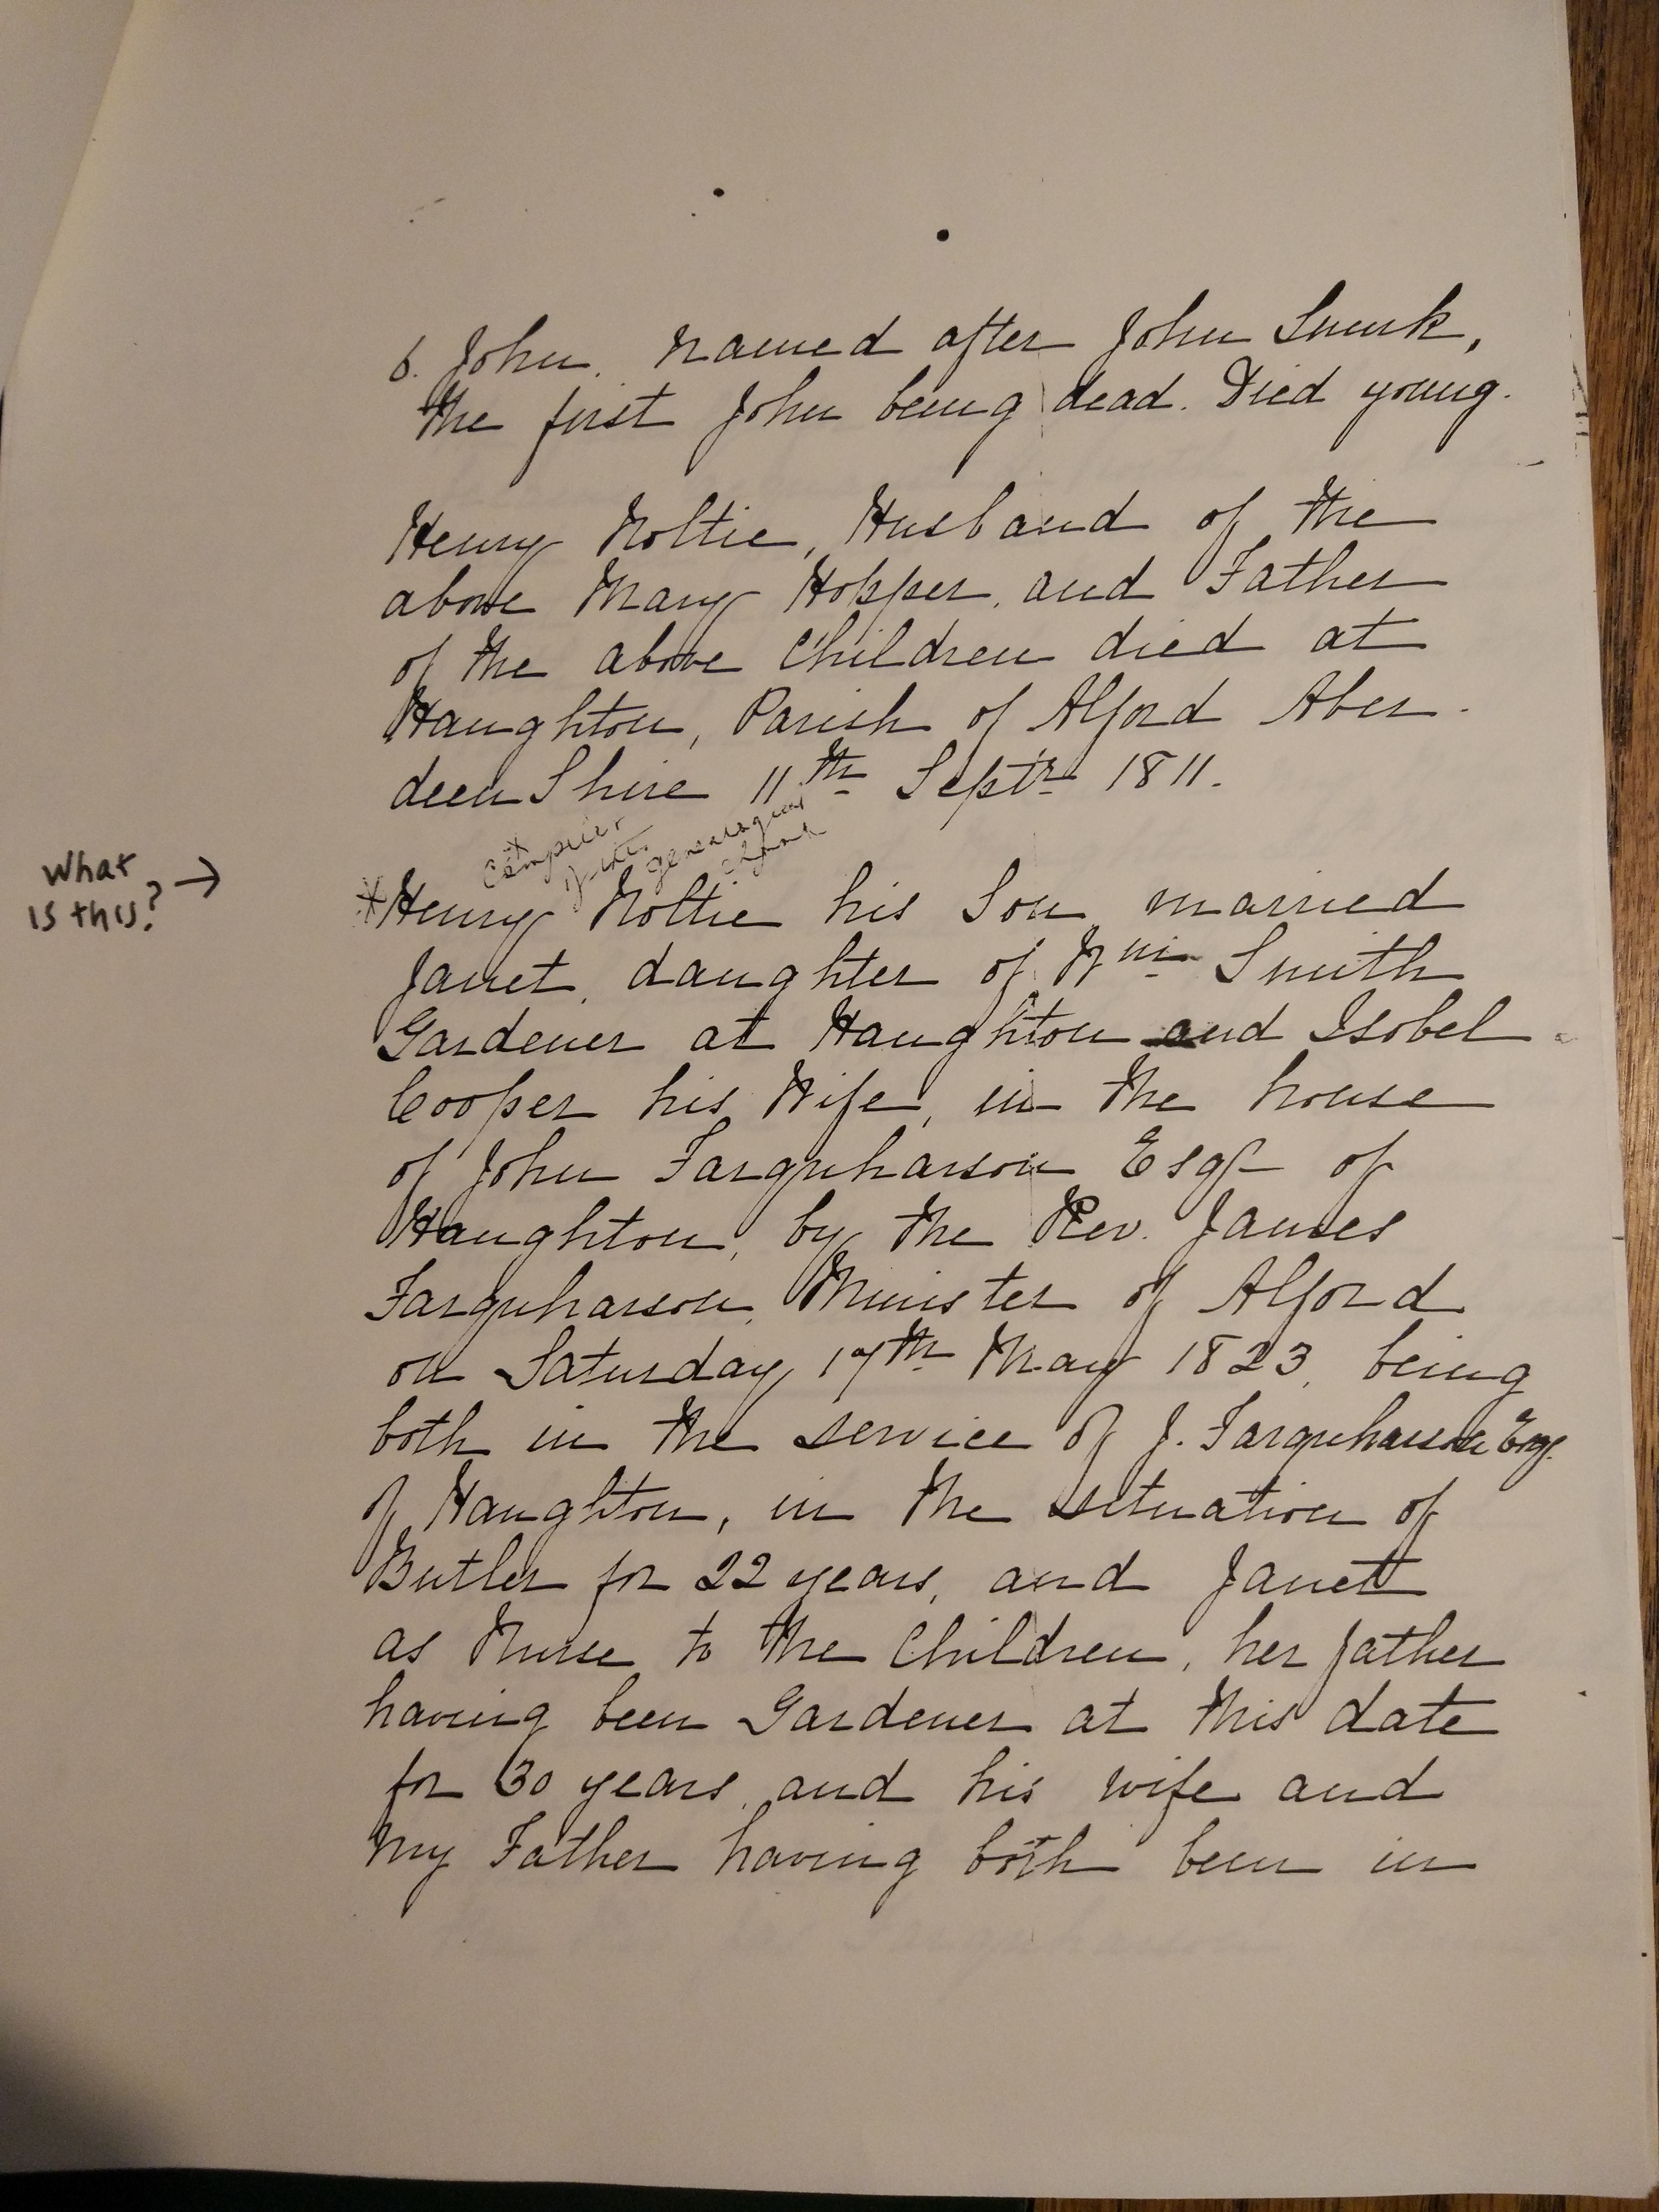 6. John, named after John Smirk,
the first John being dead. Died young.
Henry Noltie, Husband of the
above Mary Hopper, and Father
of the above Children died at
Haughton, Parish of Alford Aber-
deen Shire 11th Septr 1811.
* compiler
of this
genealogical
What
is this? →
* Henry Noltie his Son, married
Janet, daughter of Wm Smith
Gardener at Haughton and Isobel
Cooper his Wife, in the house
of John Farquharson Esqr of
Haughton, by the Rev. James
Farquharson, Minister of Alford
on Saturday 17th May 1823, being
both in the service of J. Farquharson Esq.
of Haughton, in the situation of
Butler for 22 years, and Janet
as Nurse to the Children, her father
having been Gardener at this date
for 30 years, and his wife and
my Father having both been in